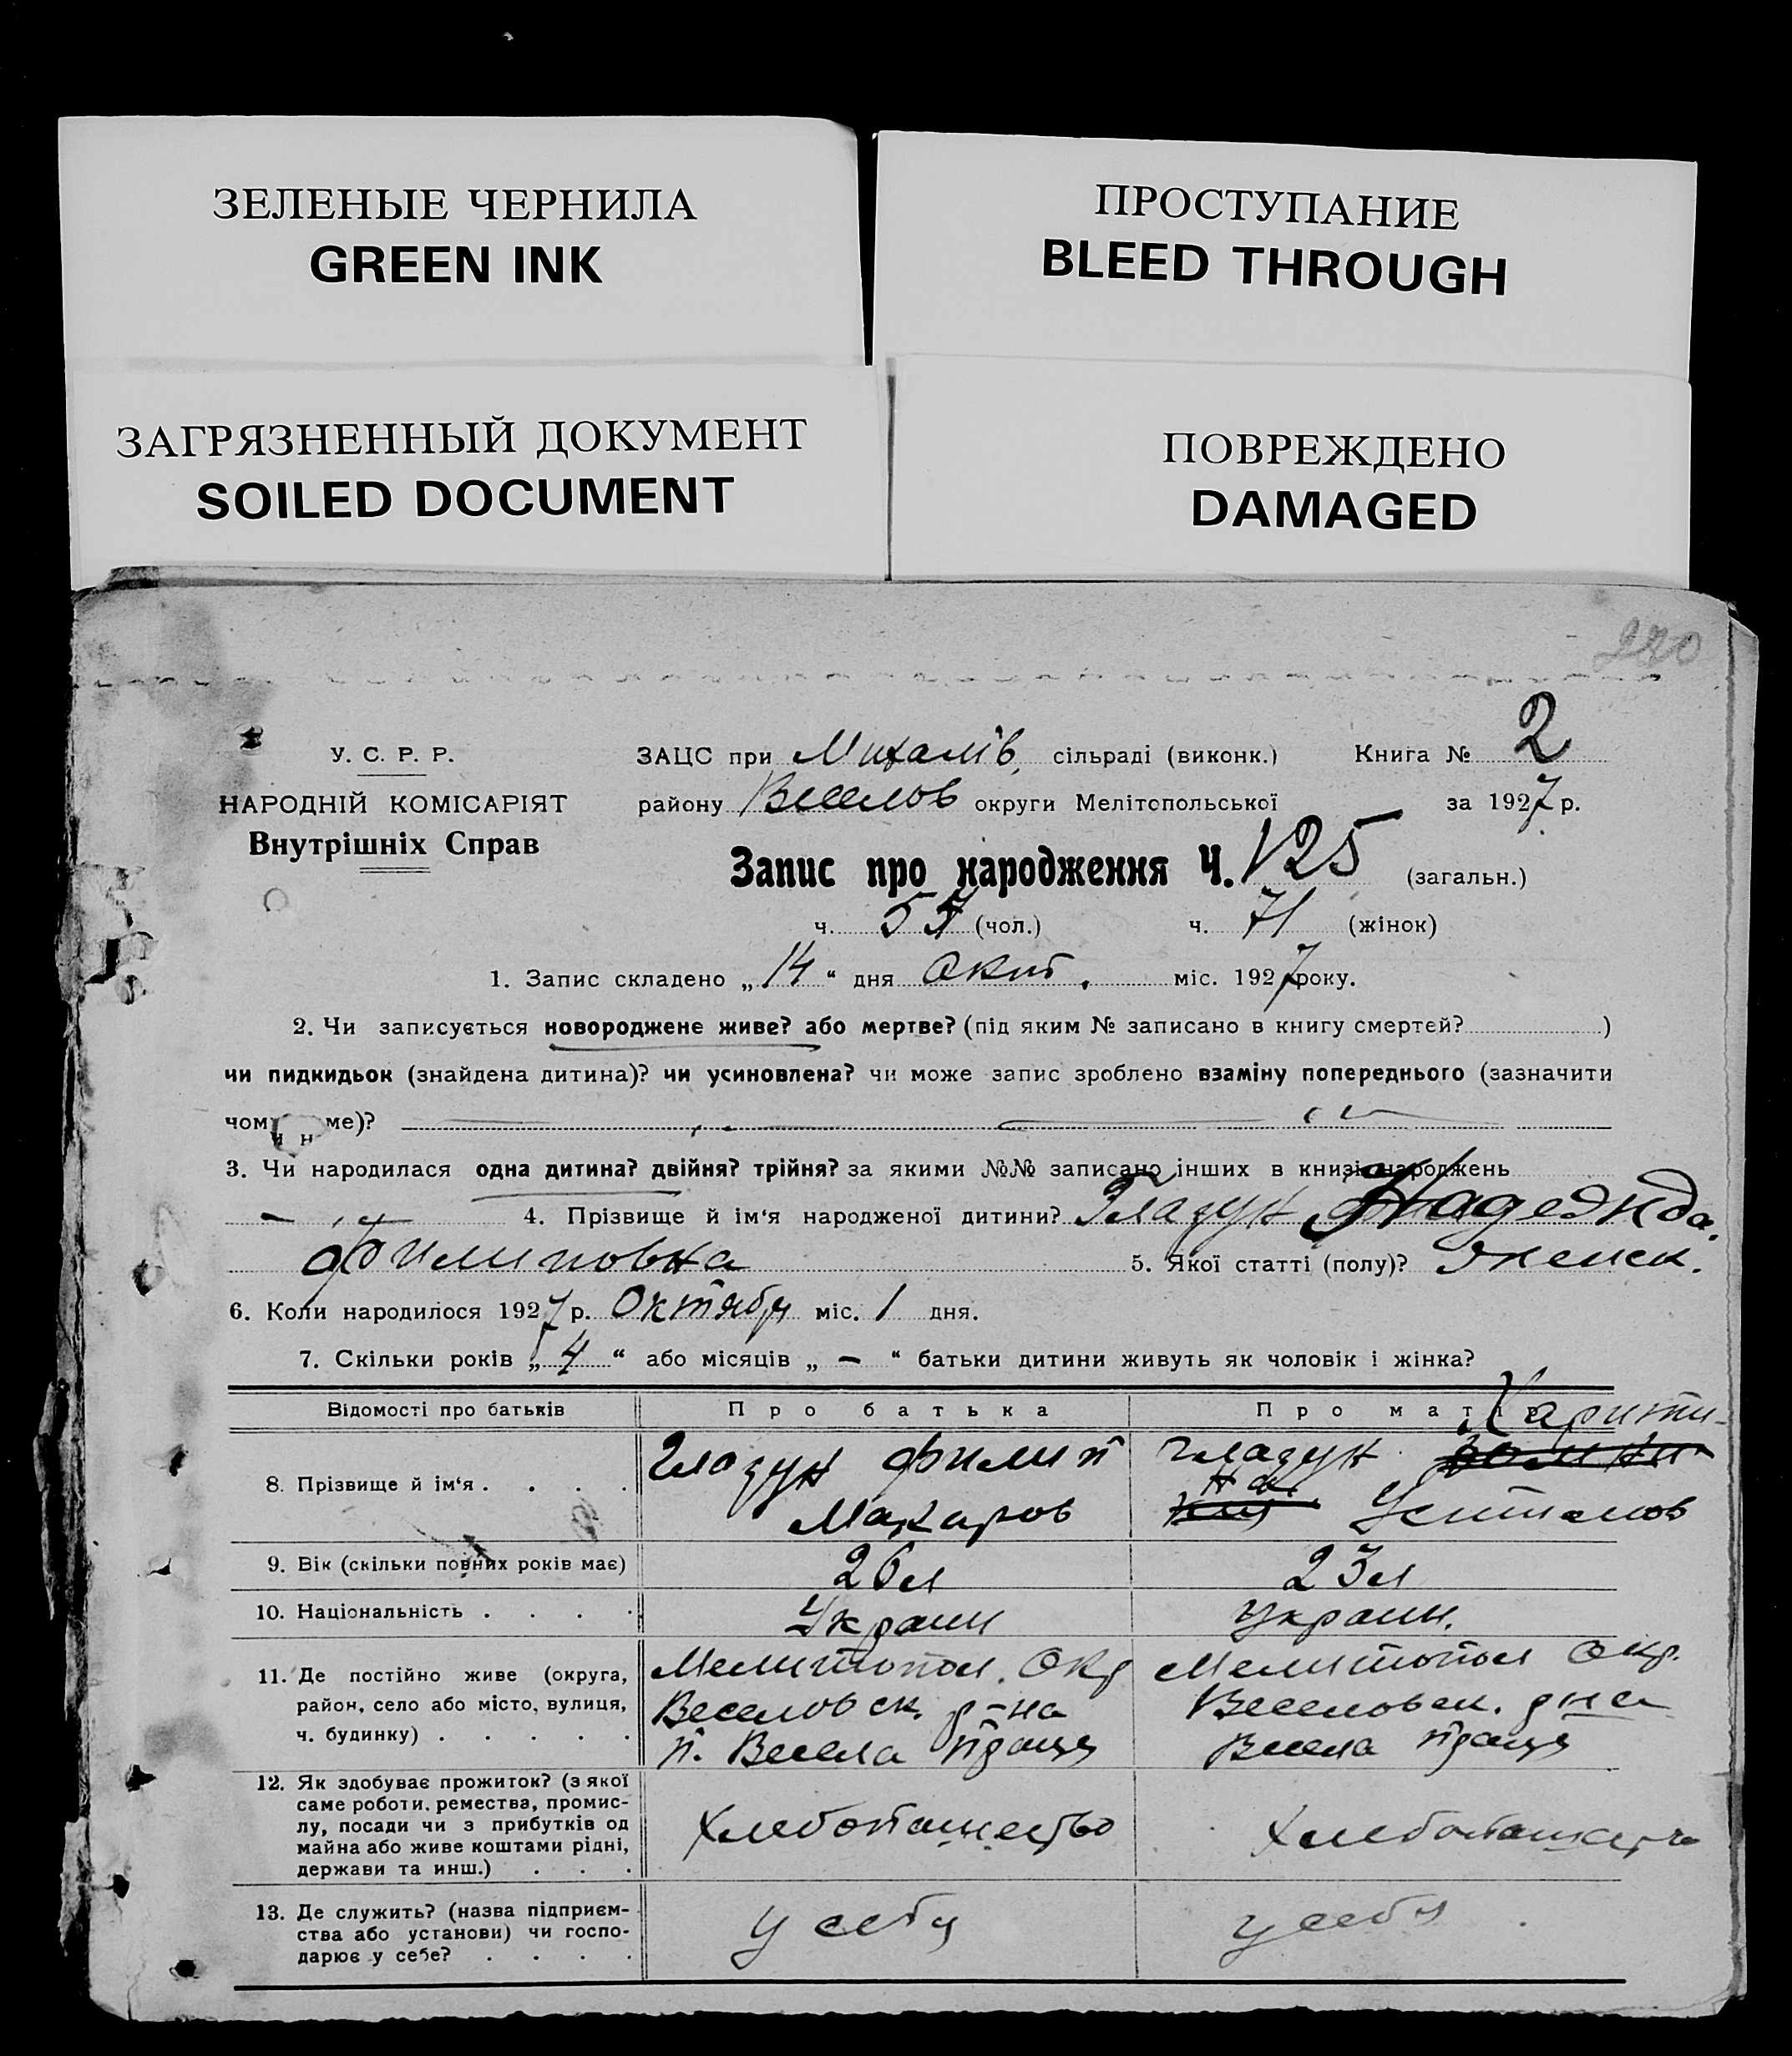 ЗЕЛЕНЫЕ ЧЕРНИЛА
GREEN INK
ПРОСТУПАНИЕ
BLEED THROUGH
ЗАГРЯЗНЕННЫЙ ДОКУМЕНТ
SOILED DOCUMENT
ПОВРЕЖДЕНО
DAMAGED
У. С. Р. Р.
НАРОДНІЙ КОМІСАРІЯТ
Внутрішніх Справ
ЗАЦС при Михалів. сільраді (виконк.) Книга № 2
району Веселов округи Мелітопольської за 1927 р.
Запис про народження Ч. 125 (загальн.)
ч. (чол.) ч. 71 (жінок)
1. Запис складено „14“ дня Окт. міс. 1927 року.
2. Чи записується новороджене живе? або мертве? (під яким № записано в книгу смертей? )
чи пидкидьок (знайдена дитина)? чи усиновлена? чи може запис зроблено взаміну попереднього (зазначити
чом ме)?
3. Чи народилася одна дитина? двійня? трійня? за якими №№ записано інших в книзі народжень
— 4. Прізвище й ім‘я народженої дитини? Гладун Надежда
Филиповна 5. Якої статті (полу)? Женск.
6. Коли народилося 1927 р. Октября міс. 1 дня.
7. Скільки років „4“ або місяців „ — “ батьки дитини живуть як чоловік і жінка?
Відомості про батьків Про батька Про матір
8. Прізвище й ім‘я . . . . Гладун Филип Макаров Гладун Харитина Устимов
9. Вік (скільки повних років має) 26 л 23 л
10. Національність . . . . Украин Украин.
11. Де постійно живе (округа, район, село або місто, вулиця, ч. будинку) . . . . .
Мелитопол. Окр
Веселовск. р-на
п. Весела праця
Мелитопол Окр.
Веселовск. р-на
Весела праця
12. Як здобуває прожиток? (з якої
саме роботи, ремества, промис-
лу, посади чи з прибутків од
майна або живе коштами рідні,
держави та инш.) . . .
Хлебопашество Хлебопашество
13. Де служить? (назва підприєм-
ства або установи) чи госпо-
дарює у себе? . . . .
у себя у себя